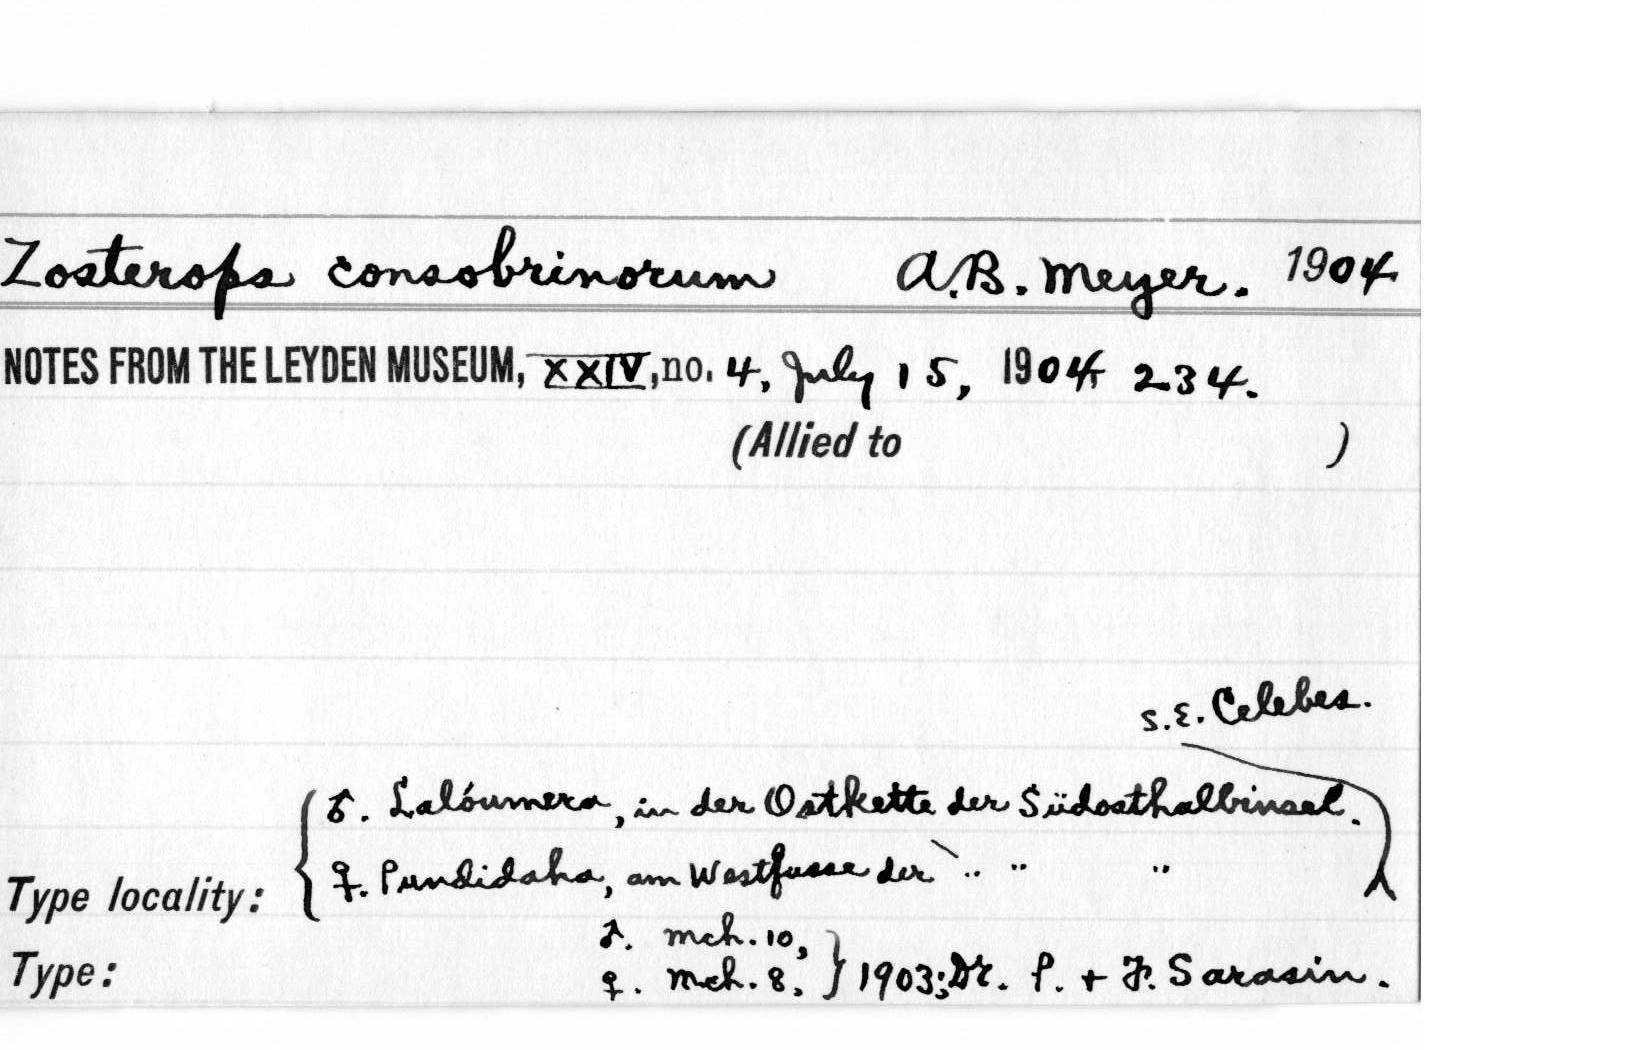 Zosterops consobrinorum A.B. Meyer. 1904
NOTES FROM THE LEYDEN MUSEUM, XXIV, no. 4, July 15, 1904, 234.
(Allied to )
S.E. Celebes.
♂. Lalóumera, in der Ostkette der Südosthalbinsel.
Type locality: ♀. Pundidaha, am Westfusse der " " "
♂. Mch. 10,
Type: ♀. Mch. 8, } 1903; Dr. P. + F. Sarasin.